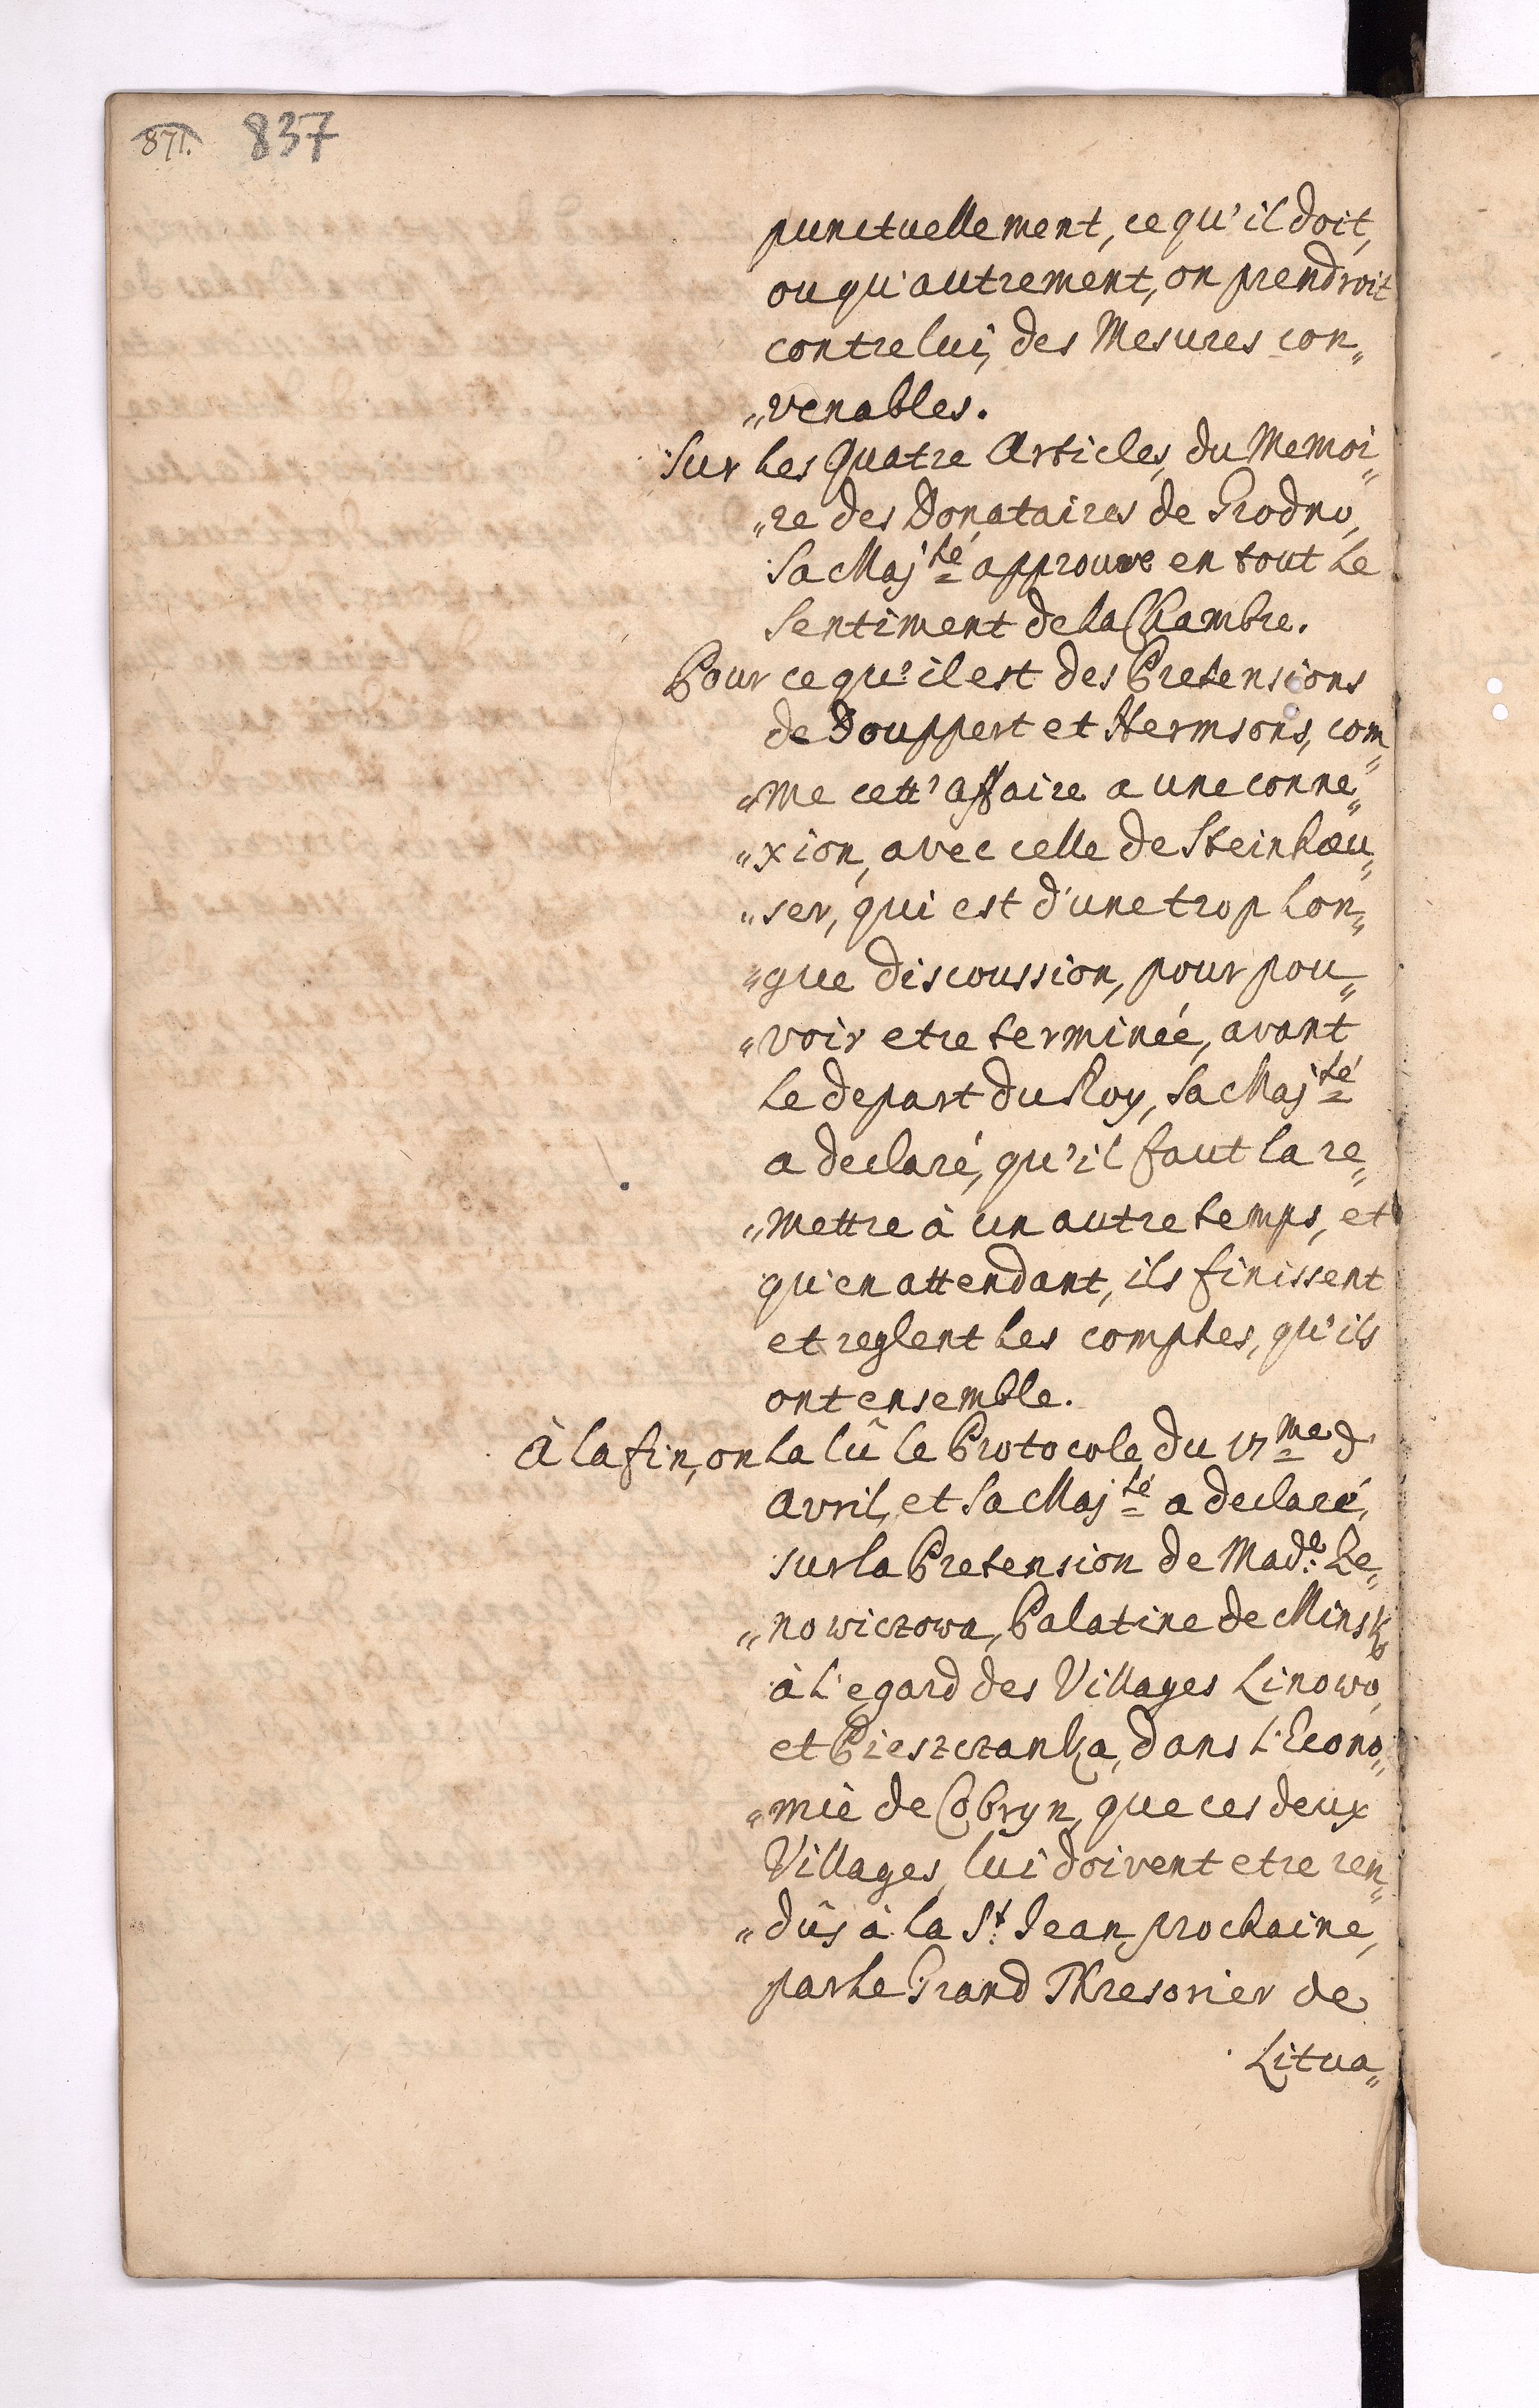 871. 837
punctuellement, ce qu'il doit,
ou qu'autrement, on prendroit
contre lui, des Mesures con„
„venables.
Sur les Quatre Articles, du Memoi„
„re des Donataires de Grodno,
Sa Majté approuve en tout le
Sentiment de la Chambre.
Pour ce qu'il est des Pretensions
de Douppert et Hermsons, com„
„me cett' affaire a une conne„
„xion, avec celle de Steinhæu„
„ser, qui est d'une trop lon„
„gue discoussion, pour pou„
„voir etre terminée, avant
le depart du Roy, Sa Majté
a declaré, qu'il faut la re„
„mettre à un autre temps, et
qu'en attendant, ils finissent
et reglent les comptes, qu'ils
ont ensemble.
À la fin, on la lû le Protocole du 17me d'
Avril, et Sa Majté a declaré,
sur la Pretension de Made: Ze„
„nowiczowa, Palatine de Minsk,
à l'egard des Villages Linowo,
et Pieszczanka, dans l'Econo„
„mie de Cobryn, que ces deux
Villages, lui doivent etre ren„
„dûs à la St: Jean prochaine,
par le Grand Thresorier de
Litua„